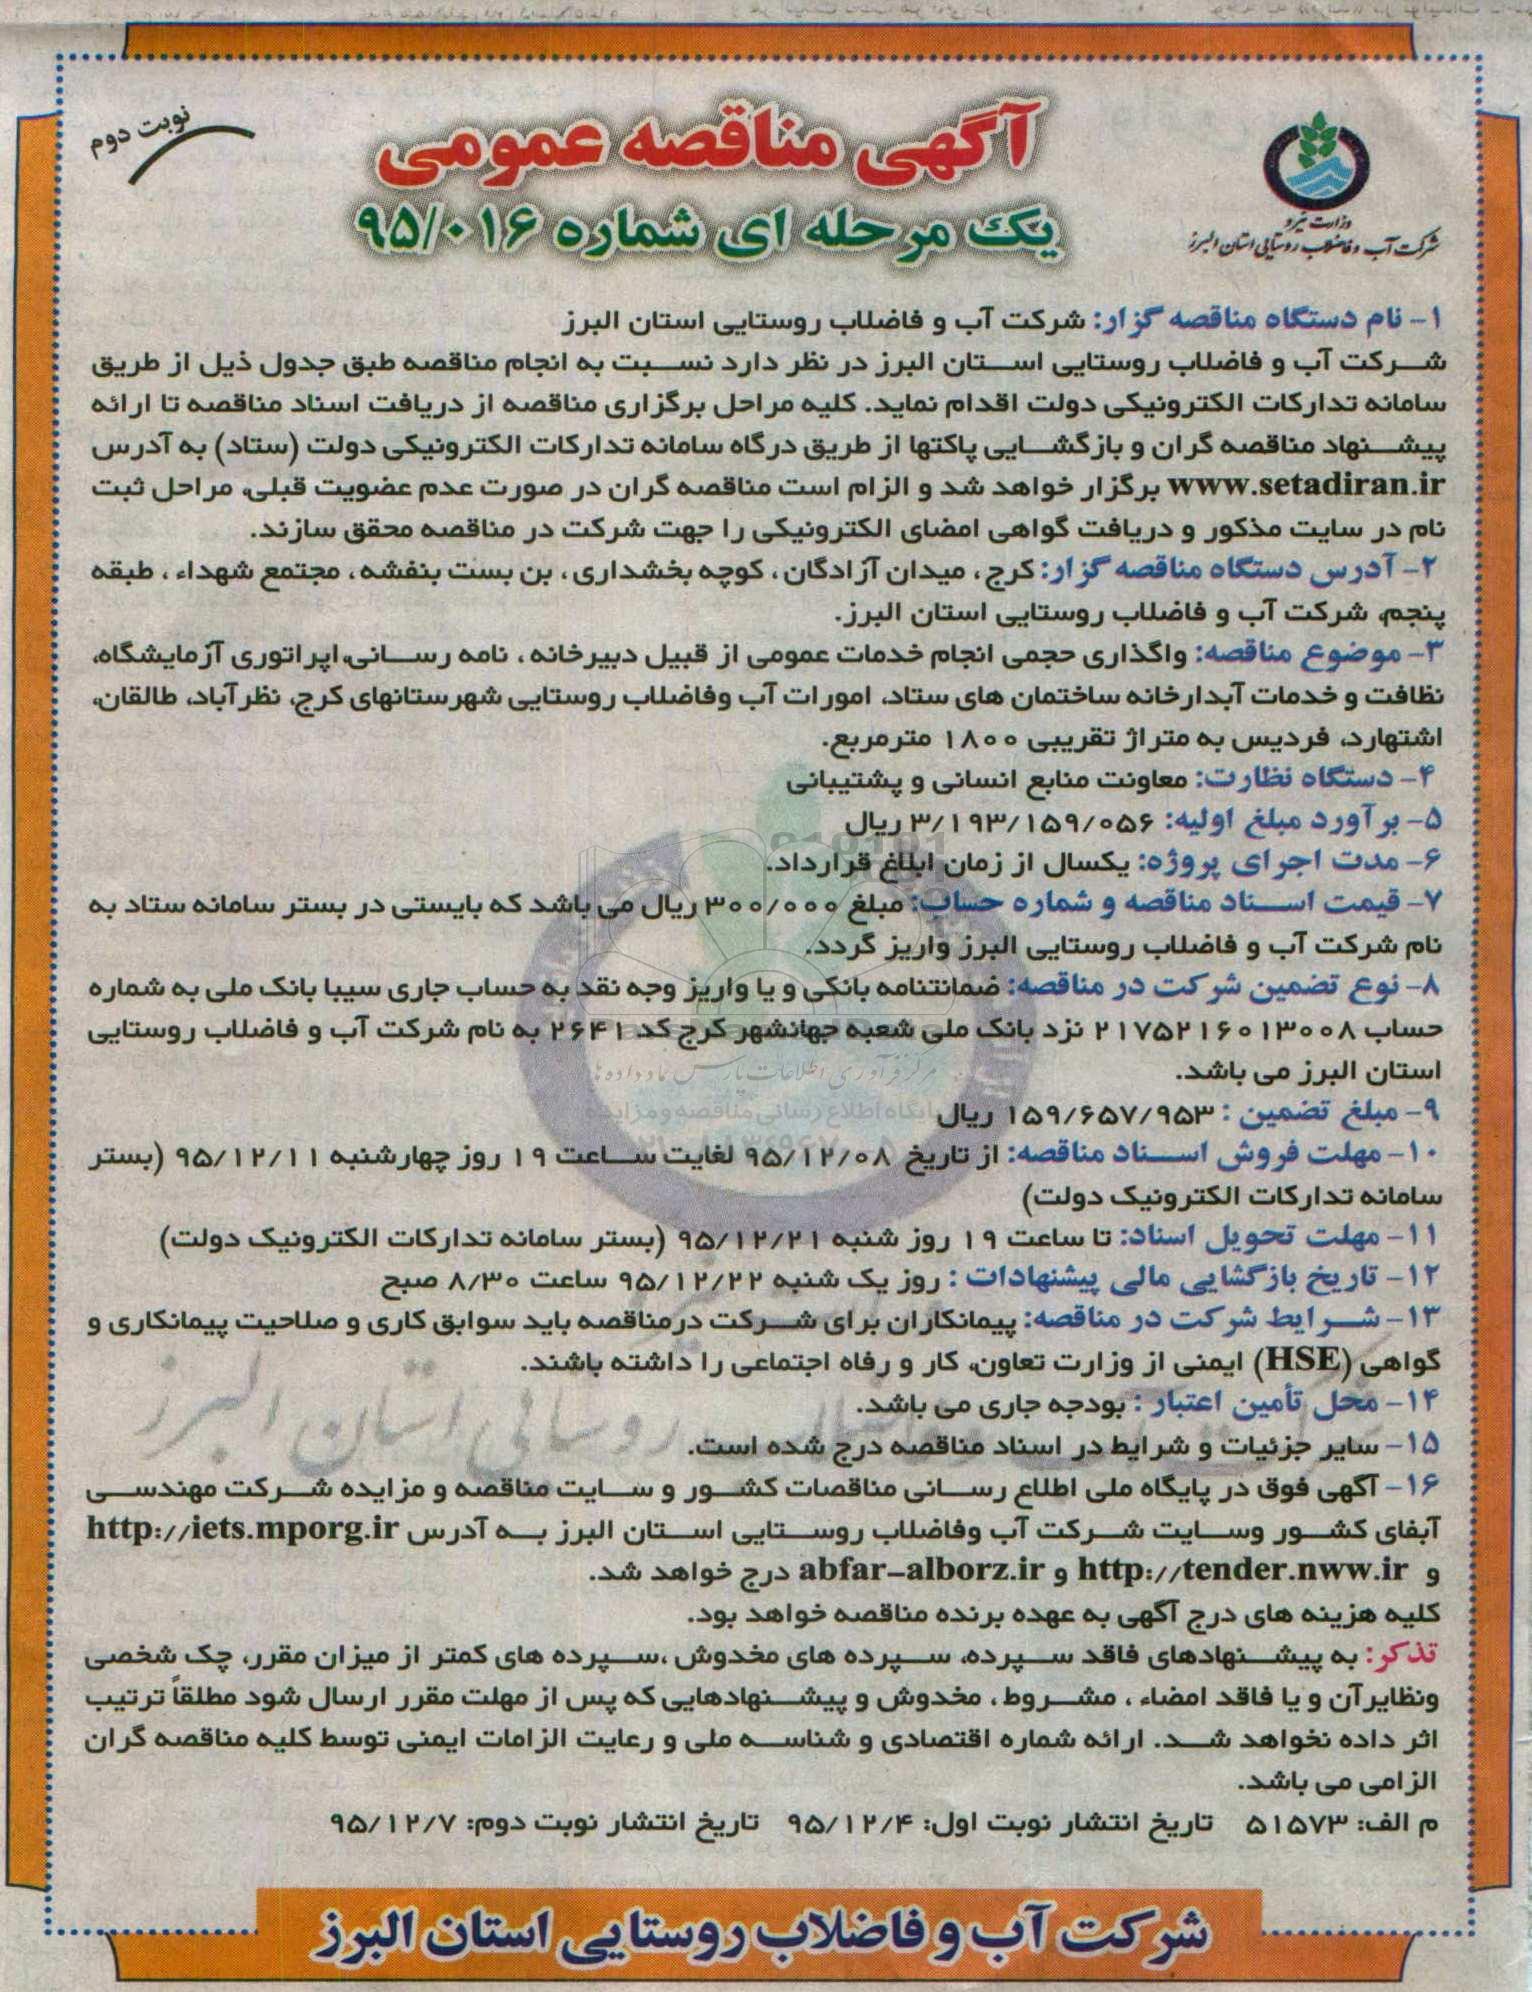 نوبت دوم
آگهی مناقصه عمومی
یک مرحله ای شماره ۹۵/۰۱۶
وزارت نیرو
شرکت آب و فاضلاب روستایی استان البرز
۱- نام دستگاه مناقصه گزار: شرکت آب و فاضلاب روستایی استان البرز
شرکت آب و فاضلاب روستایی استان البرز در نظر دارد نسبت به انجام مناقصه طبق جدول ذیل از طریق
سامانه تدارکات الکترونیکی دولت اقدام نماید. کلیه مراحل برگزاری مناقصه از دریافت اسناد مناقصه تا ارائه
پیشنهاد مناقصه گران و بازگشایی پاکتها از طریق درگاه سامانه تدارکات الکترونیکی دولت (ستاد) به آدرس
www.setadiran.ir برگزار خواهد شد و الزام است مناقصه گران در صورت عدم عضویت قبلی، مراحل ثبت
نام در سایت مذکور و دریافت گواهی امضای الکترونیکی را جهت شرکت در مناقصه محقق سازند.
۲- آدرس دستگاه مناقصه گزار: کرج، میدان آزادگان، کوچه بخشداری، بن بست بنفشه، مجتمع شهداء، طبقه
پنجم، شرکت آب و فاضلاب روستایی استان البرز.
۳- موضوع مناقصه: واگذاری حجمی انجام خدمات عمومی از قبیل دبیرخانه، نامه رسانی،اپراتوری آزمایشگاه،
نظافت و خدمات آبدارخانه ساختمان های ستاد، امورات آب وفاضلاب روستایی شهرستانهای کرج، نظرآباد، طالقان،
اشتهارد، فردیس به متراژ تقریبی ۱۸۰۰ مترمربع.
۴- دستگاه نظارت: معاونت منابع انسانی و پشتیبانی
۵- برآورد مبلغ اولیه: ۳/۱۹۳/۱۵۹/۰۵۶ ریال
۶- مدت اجرای پروژه: یکسال از زمان ابلاغ قرارداد.
۷- قیمت اسناد مناقصه و شماره حساب: مبلغ ۳۰۰/۰۰۰ ریال می باشد که بایستی در بستر سامانه ستاد به
نام شرکت آب و فاضلاب روستایی البرز واریز گردد.
۸- نوع تضمین شرکت در مناقصه: ضمانتنامه بانکی و یا واریز وجه نقد به حساب جاری سیبا بانک ملی به شماره
حساب ۲۱۷۵۲۱۶۰۱۳۰۰۸ نزد بانک ملی شعبه جهانشهر کرج کد ۲۶۴۱ به نام شرکت آب و فاضلاب روستایی
استان البرز می باشد.
۹- مبلغ تضمین : ۱۵۹/۶۵۷/۹۵۳ ریال
۱۰- مهلت فروش اسناد مناقصه: از تاریخ ۹۵/۱۲/۰۸ لغایت ساعت ۱۹ روز چهارشنبه ۹۵/۱۲/۱۱ (بستر
سامانه تدارکات الکترونیک دولت)
۱۱- مهلت تحویل اسناد: تا ساعت ۱۹ روز شنبه ۹۵/۱۲/۲۱ (بستر سامانه تدارکات الکترونیک دولت)
۱۲- تاریخ بازگشایی مالی پیشنهادات : روز یک شنبه ۹۵/۱۲/۲۲ ساعت ۸/۳۰ صبح
۱۳- شرایط شرکت در مناقصه: پیمانکاران برای شرکت درمناقصه باید سوابق کاری و صلاحیت پیمانکاری و
گواهی (HSE) ایمنی از وزارت تعاون، کار و رفاه اجتماعی را داشته باشند.
۱۴- محل تأمین اعتبار : بودجه جاری می باشد.
۱۵- سایر جزئیات و شرایط در اسناد مناقصه درج شده است.
۱۶- آگهی فوق در پایگاه ملی اطلاع رسانی مناقصات کشور و سایت مناقصه و مزایده شرکت مهندسی
آبفای کشور وسایت شرکت آب وفاضلاب روستایی استان البرز به آدرس http://iets.mporg.ir
و http://tender.nww.ir و abfar-alborz.ir درج خواهد شد.
کلیه هزینه های درج آگهی به عهده برنده مناقصه خواهد بود.
تذکر: به پیشنهادهای فاقد سپرده، سپرده های مخدوش ،سپرده های کمتر از میزان مقرر، چک شخصی
ونظایرآن و یا فاقد امضاء، مشروط، مخدوش و پیشنهادهایی که پس از مهلت مقرر ارسال شود مطلقاً ترتیب
اثر داده نخواهد شد. ارائه شماره اقتصادی و شناسه ملی و رعایت الزامات ایمنی توسط کلیه مناقصه گران
الزامی می باشد.
م الف: ۵۱۵۷۳ تاریخ انتشار نوبت اول: ۹۵/۱۲/۴ تاریخ انتشار نوبت دوم: ۹۵/۱۲/۷
شرکت آب و فاضلاب روستایی استان البرز